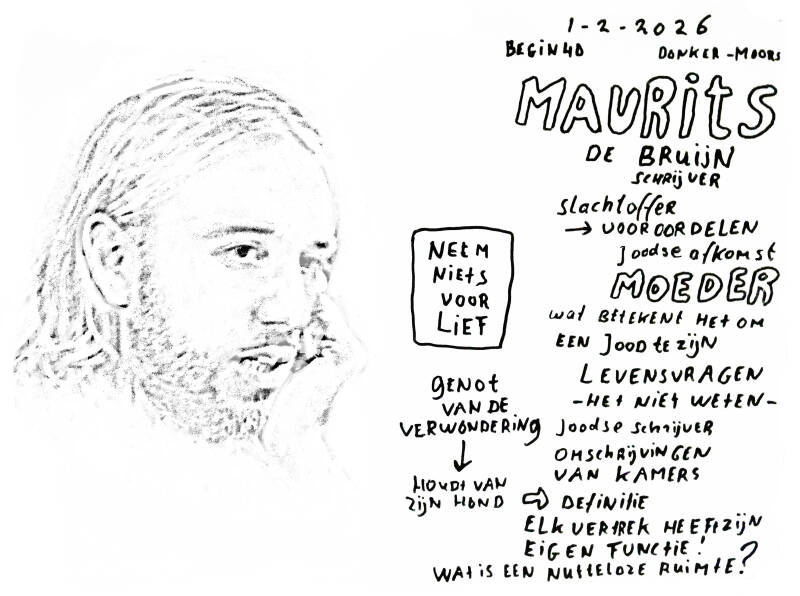 1-2-2026
BEGIN 40 DONKER-MOORS
MAURITS
DE BRUIJN
SCHRIJVER
slachtoffer
→ VOOROORDELEN
Joodse afkomst
MOEDER
wat BETEKENT HET OM
EEN JOOD TE ZIJN
LEVENSVRAGEN
-HET NIET WETEN-
Joodse schrijver
OMSCHRIJVINGEN
VAN KAMERS
⇨ DEFINITIE
ELK VERTREK HEEFT ZIJN
EIGEN FUNCTIE!
WAT IS EEN NUTTELOZE RUIMTE?
NEEM
NIETS
VOOR
LIEF
GENOT
VAN DE
VERWONDERING
↓
HOUDT VAN
ZIJN HOND